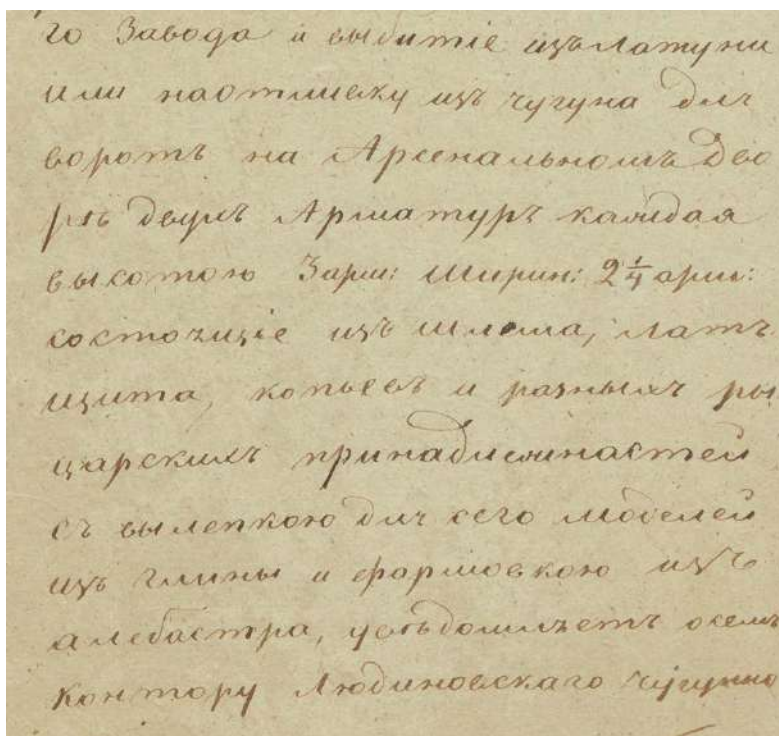 го Завода и выбитіе изъ латуни
или на отливку изъ чугуна для
воротъ на Арсенальномъ Дво
рѣ двухъ Арматуръ каждая
высотою 3 арш: Шприн: 2 1/4 арш:
состоящіе изъ шлема, латъ
щита, копьевъ и разныхъ ры
царскихъ принадлежностей
съ вылепкою для сего моделей
изъ глины и формовкою изъ
алебастра, увѣдомляетъ о семъ
Контору Людиновскаго чугунно